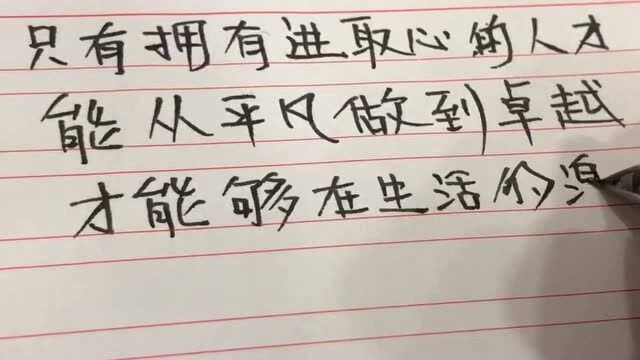 只有拥有进取心的人才
能从平凡做到卓越
才能够在生活的